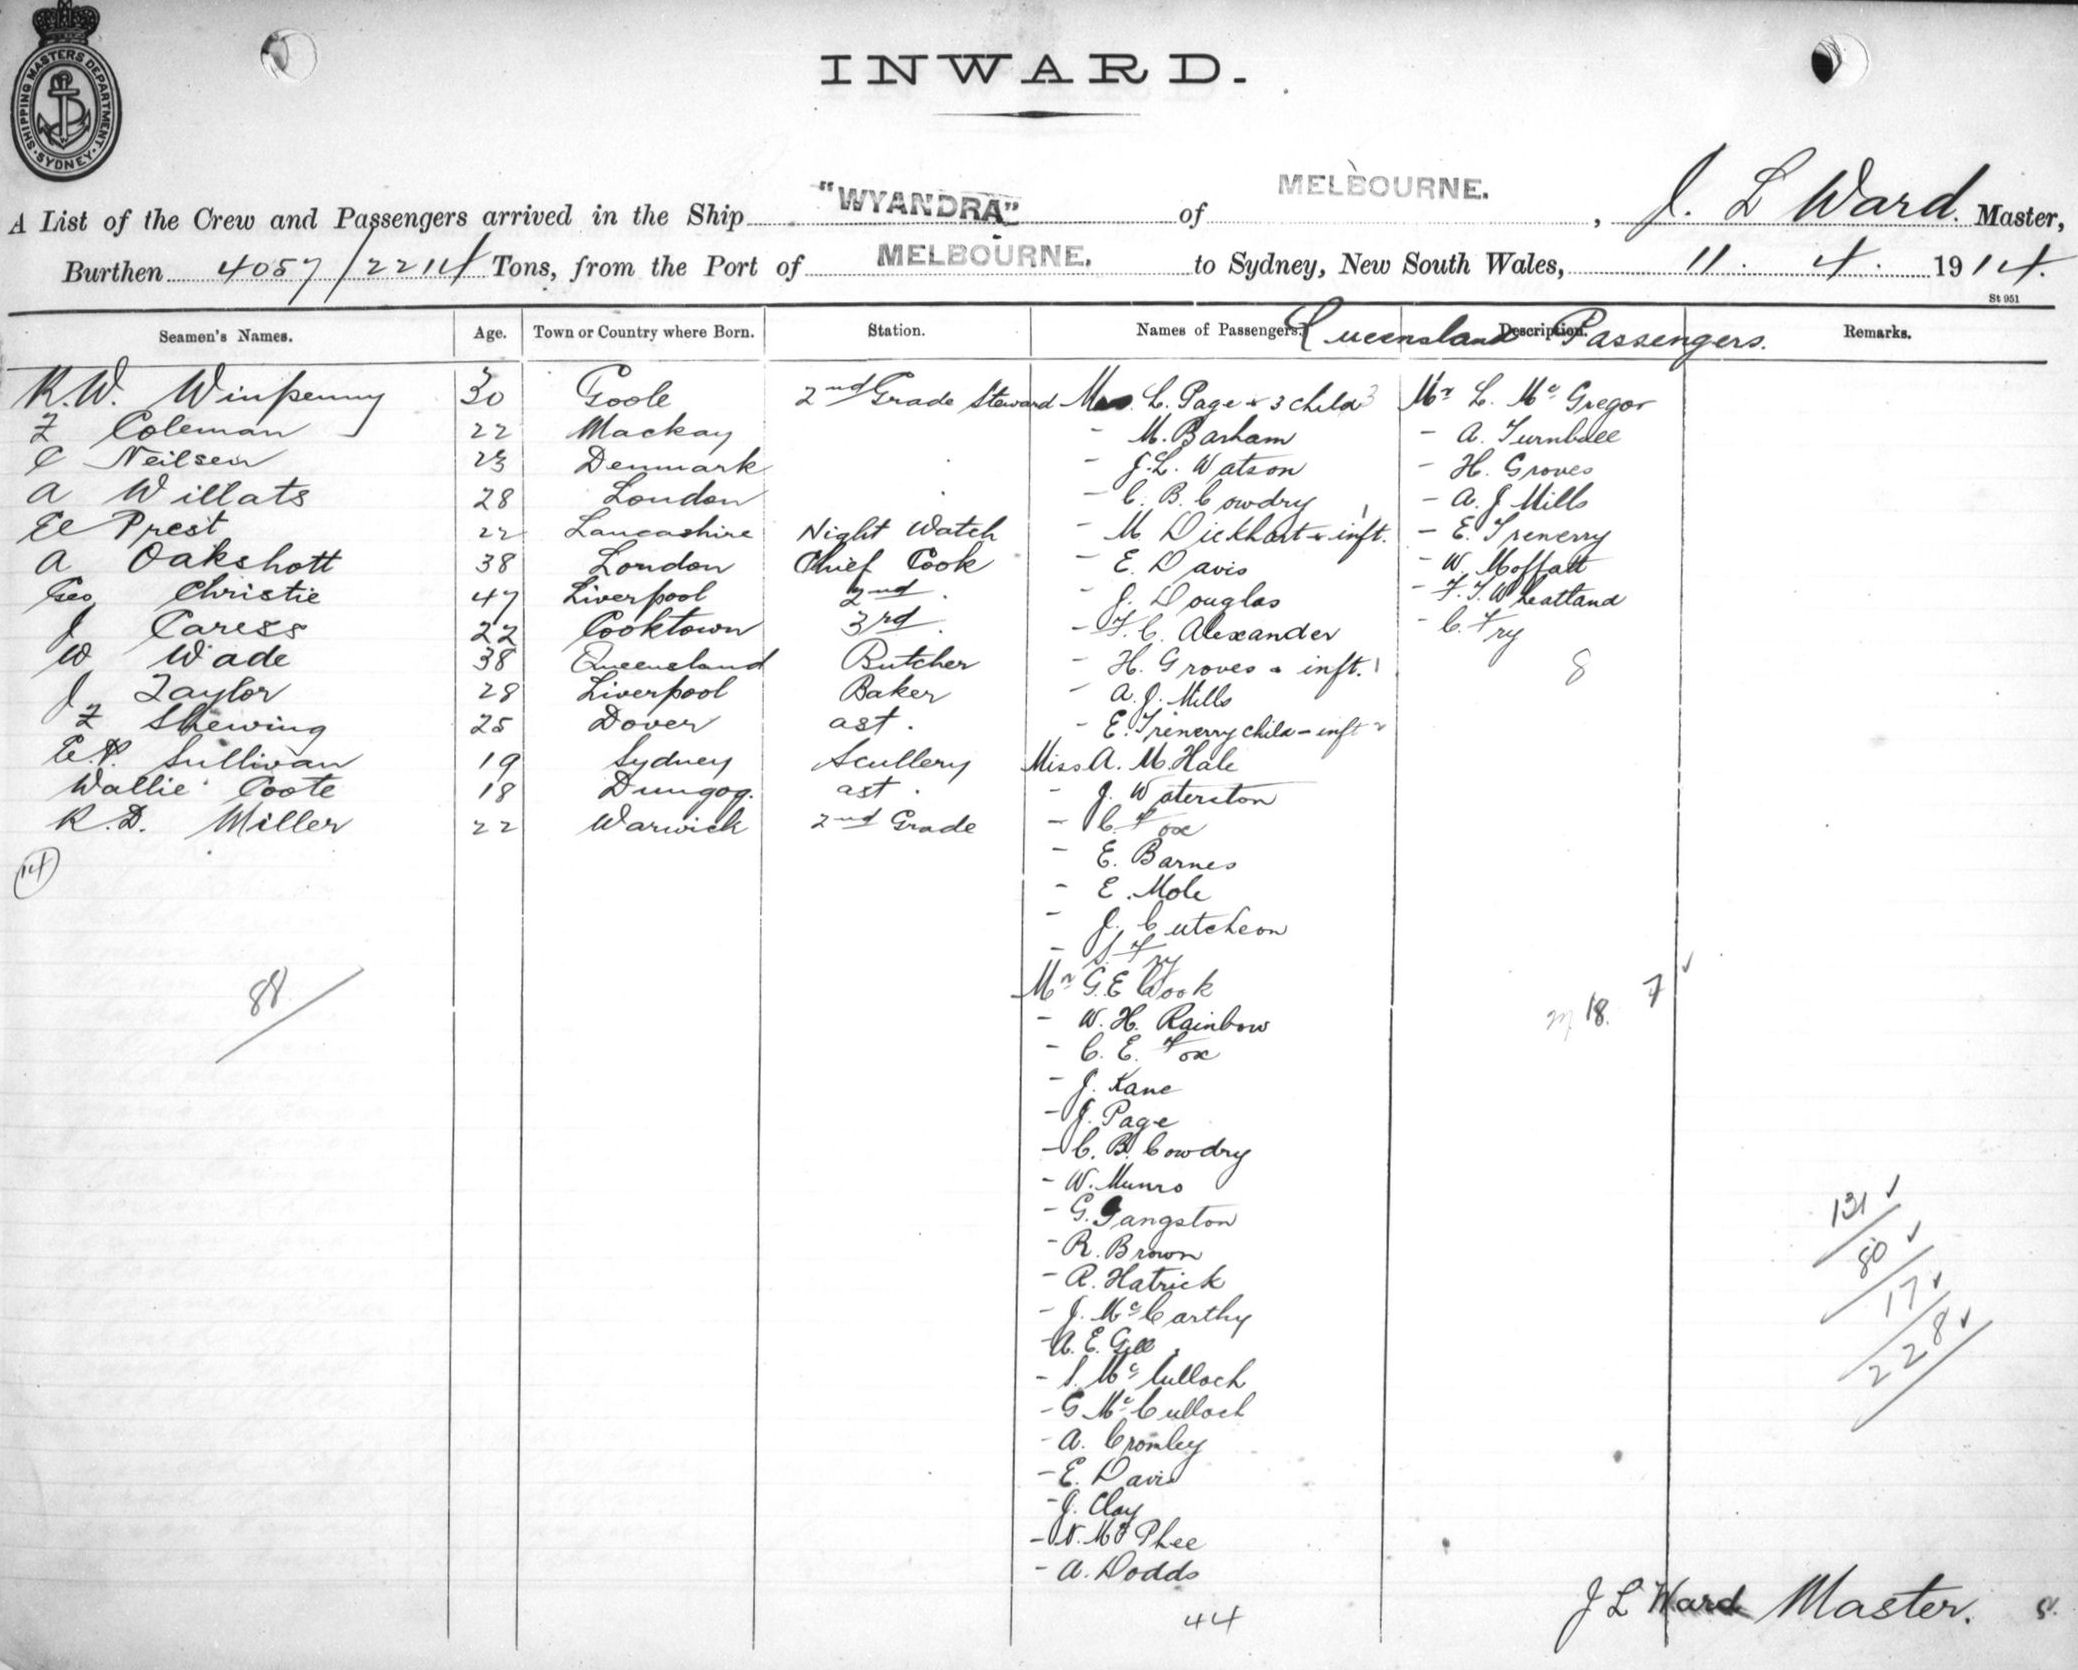 SHIPPING MASTERS DEPARTMENT. SYDNEY.
INWARD.
A List of the Crew and Passengers arrived in the Ship "WYANDRA" of MELBOURNE. , J. L Ward. Master,
Burthen 4057/2214 Tons, from the Port of MELBOURNE. to Sydney, New South Wales, 11. 4. 1914.
St 951
Seamen's Names. Age. Town or Country where Born. Station. Names of Passengers. Description. Remarks.
Queensland Passengers.
R.W. Winpenny 30 Goole 2nd Grade Steward
Z Coleman 22 Mackay
C Neilsen 23 Denmark
A Willats 28 London
Prest 22 Lancashire Night Watch
A Oakshott 38 London Chief Cook
Geo Christie 47 Liverpool 2nd
J Caress 22 Cooktown 3rd
W Wade 38 Queensland Butcher
J Taylor 28 Liverpool Baker
Z Shewing 25 Dover ast.
Sullivan 19 Sydney Scullery
Wallie Coote 18 Dungog. ast.
R.D. Miller 22 Warwick 2nd Grade
14
88
L. Page & 3 child 3
- M. Barham
- J.L. Watson
- C. B. Cowdry
- M Dickhart & inft. 1
- E. Davis
- J. Douglas
- F. C. Alexander
- H. Groves & inft. 1
- A. J. Mills
- E. Trenerry child - inft 2
Miss A. M. Hale
- J. Waterston
- C. Fox
- E. Barnes
- E. Mole
- J. Cutcheon
- S. Fry
Mr G.E Cook
- W. H. Rainbow
- C. E. Fox
- J. Kane
- J. Page
- C. B. Cowdry
- W. Munro
- G. Gangston
- R. Brown
- R. Hatrick
- J. McCarthy
- A. E. Gill
- S. McCulloch
- G McCulloch
- A. Cromley
- E. Davis
- J. Clay
- N. McPhee
- A. Dodds
44
Mr L. McGregor
- A. Turnbull
- H. Groves
- A. J Mills
- E. Trenerry
- W. Moffatt
- F. T. Wheatland
- C. Fry
8
18. 7
131
80
17
228
J L Ward Master.